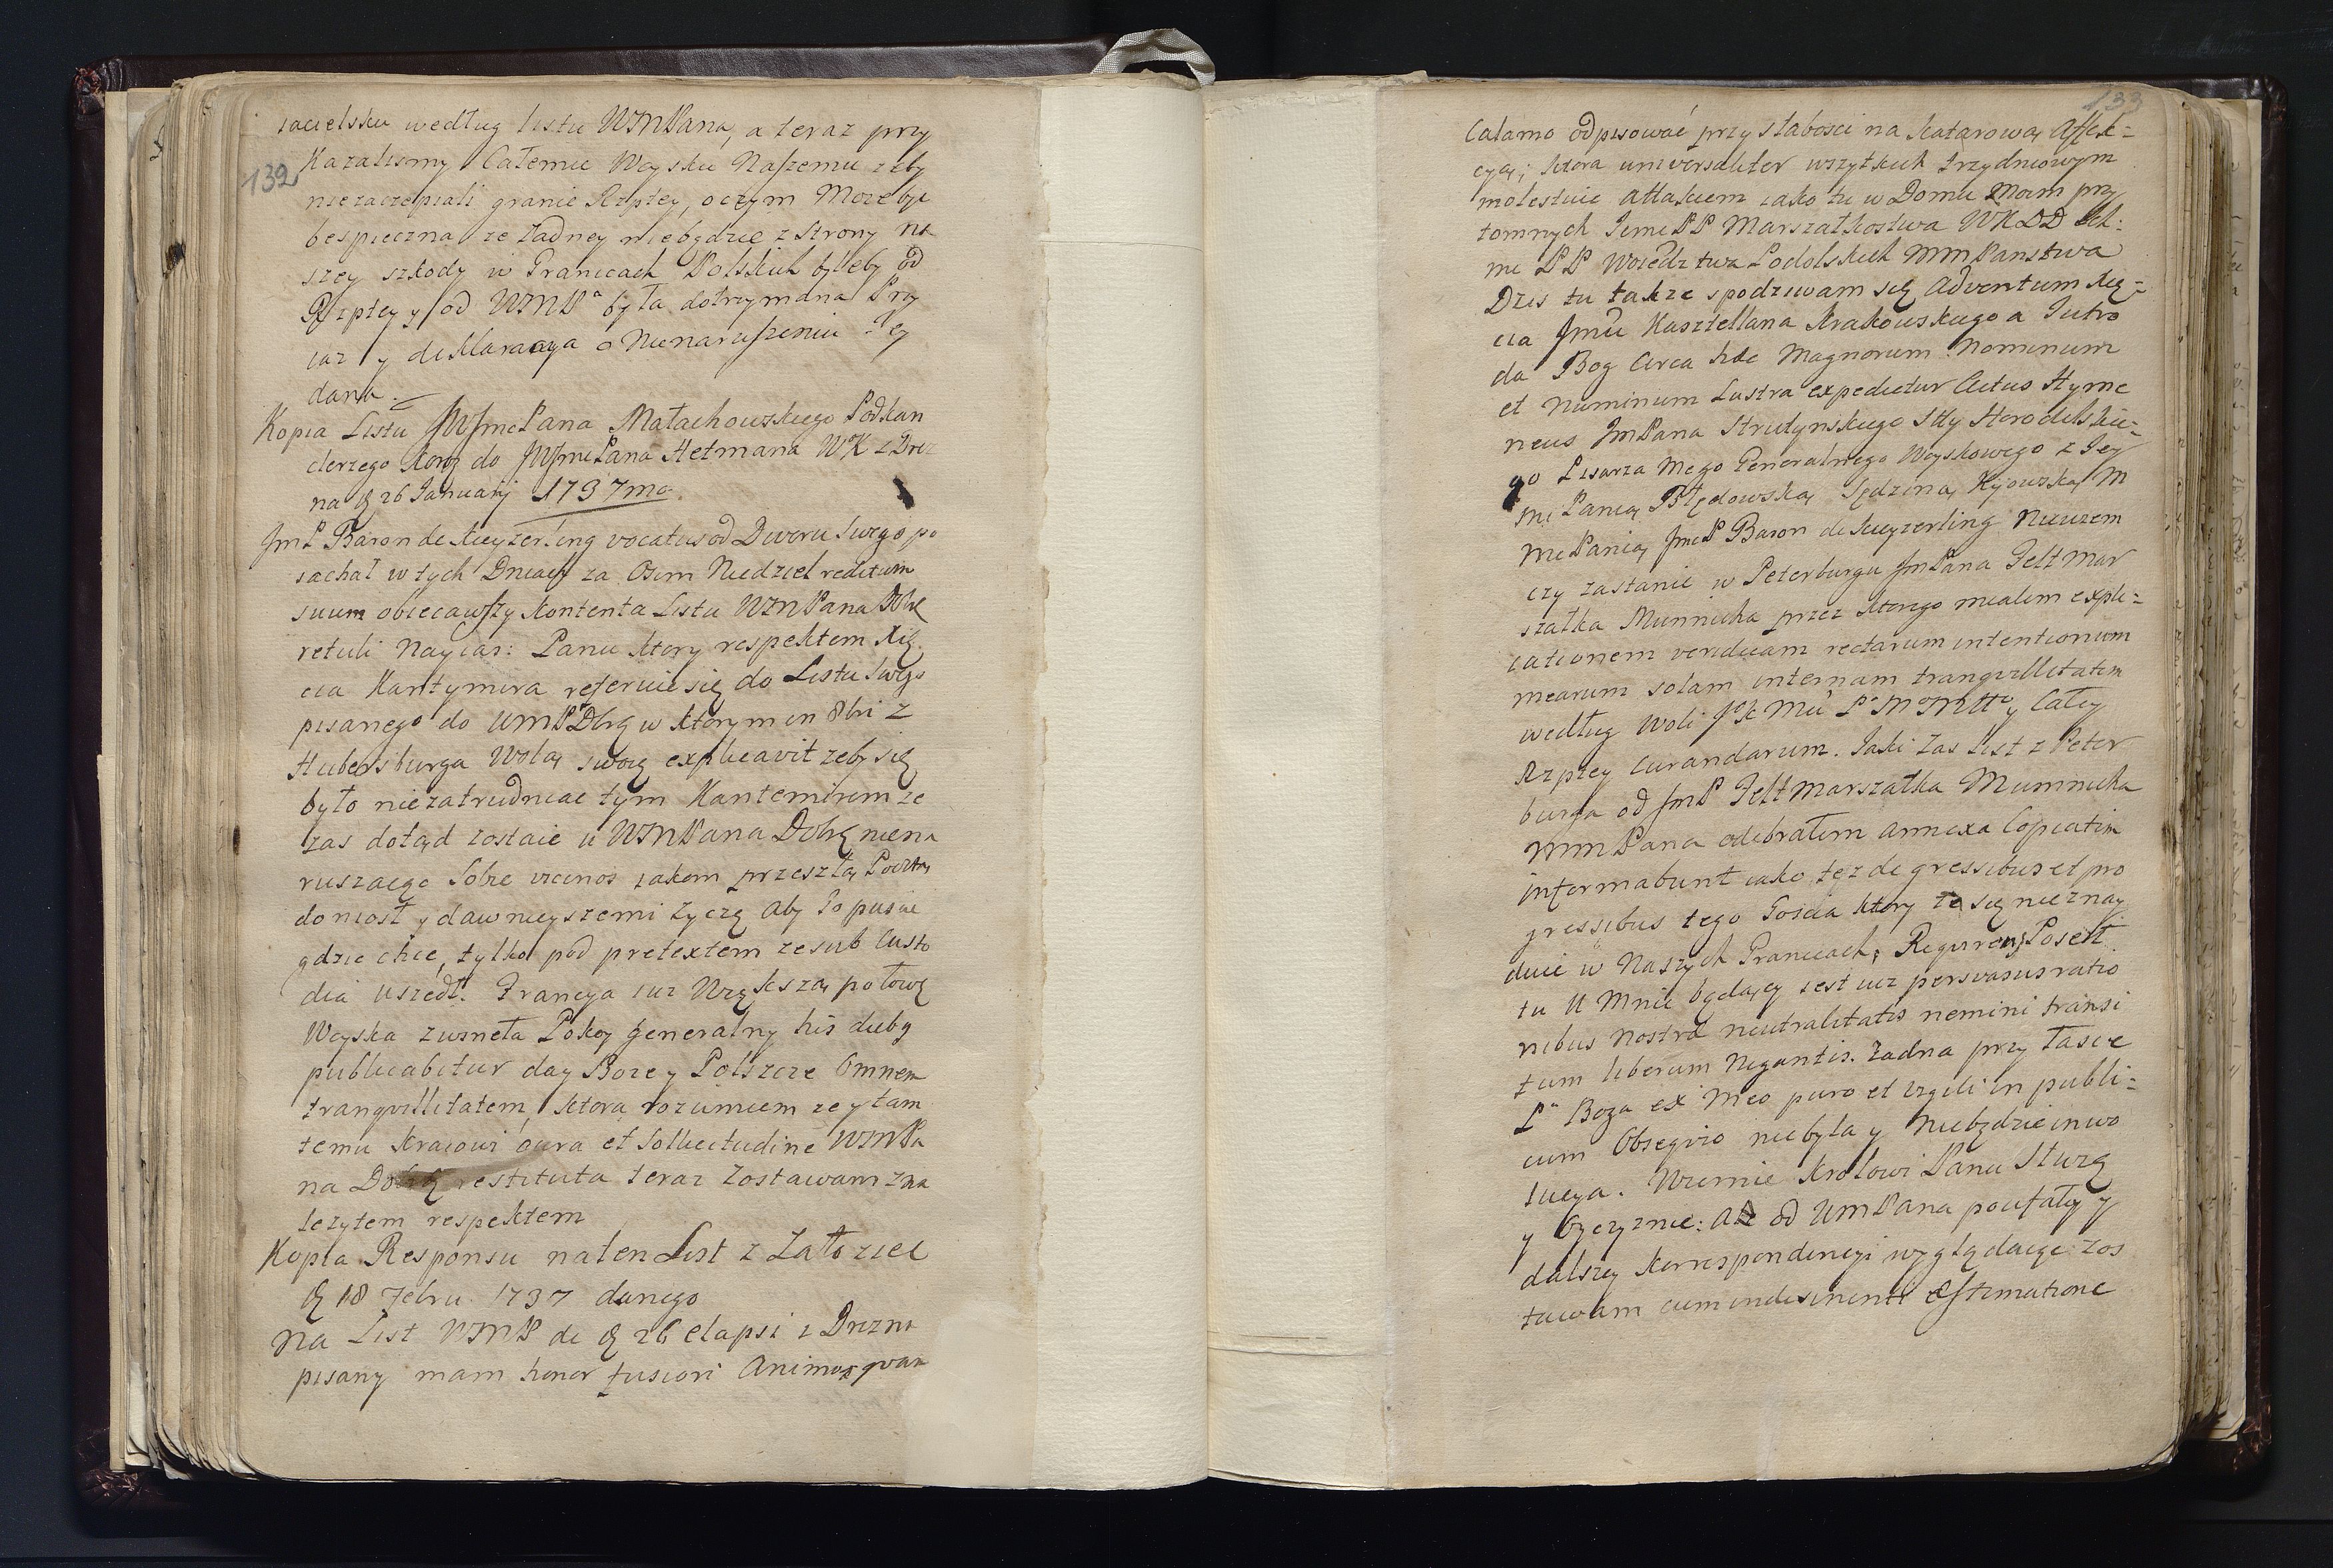 iacielsku według listu WMPana, a teraz przy
132
kazalismy Całemu Woysku Naszemu zeby
niezaczepiali granic Rzptey, oczym Moze byc
bespieczna ze Zadney niebędzie z Strony na
szey szkody w Granicach Polskich byleby od
Rzptey y od WMPa była dotrzymana Przy
iaz y deklaracya o Nienaruszeniu Iey
dana.
Kopia Listu JWJmcPana Małachowskiego Podkan
clerzego Kong do JWJmcPana Hetmana WK z Drez
na d 26 Januarij 1737mo.
JmP Baron de Keyzerling vocatus od Dworu Swego po
iachał w tych Dniach za Osim Niedziel reditum
suum obiecawszy kontenta Listu WMPana Dbr
retuli Nayias: Panu ktory respektem Xię
cia Kantymira referuie się do Listu Swego
pisanego do WMP Dbrg w ktorym in 8bri z
Hubersburga Wolą swoię explicavit zeby się
było niezatrudniac tym Kantemirem ze
zas dotąd zostaie u WMPana Dobrg niena
ruszaiąc Sobie vicinos iakom przeszłą Pocztą
doniosł y dawnieyszemi zyczę aby Go puscic
gdzie chce, tylko pod pretextem ze sub Custo
dia uszedł. Francya iuz Większą połowę
Woyska zwineła Pokoy generalny his dieby
publicabitur day Boze y Polszcze Omnem
tranqvillitatem, ktora rozumiem ze y tam
temu kraiowi cura et Sollicitudine WMPa
na Dobrg restituta teraz Zostawam zna
lezytem respektem
Kopia Responsu na ten List z Załoziec
d 18 Febru 1737 danego
Na List WMP de d 26 elapsi z Drezna
pisany mam honor fusiori Animo qvam
133
Calamo odpisować przy słabosci na katarową Affek=
cyą; ktora universaliter wszytkich trzydniowym
molestuie attakiem iako tu w Domu Moim przy
tomnych Ichmc PP Marszałkostwa WKDD Ich:
mc PP Woiedztwa Podolskich mmPanstwa
Dzis tu takze spodziwam się adventum Xię=
cia Jmci Kasztellana Krakowskiego a Jutro
da Bog Circa hæc Magnorum Nominum
et Numinum Lustra expedietur Actus Hyme
neus JmPana Strutynskiego Stty Horodelskie=
go Pisarza Mego Generalnego Woyskowego z Iey
mc Panią Błędowską Sędziną Kijowską M
mc Panią JmcP Baron de Keyzerling Niewiem
czy zastanie w Peterburgu JmPana Feltmar
szałka Munnicha przez ktorego miałem expli=
cationem veridicam rectarum intentionum
mearum solam internam tranqvillitatem
według Woli JoK Mci Po Mo Mtto y Całey
Rzptey curandarum. Jaki zas List z Peter
burga od JmP Feltmarszałka Munnicha
MmPana odebrałem annexa Copiatim
informabunt iako tez de gressibus et pro
gressibus tego Goscia ktory ze się nieznay
duie w Naszych Granicach, Requirens Poseł
tu U Mnie będący iest iuz persvasus ratio
nibus nostræ neutralitatis nemini transi
tum liberum Negantis. Zadna przy łasce
Pa Boga ex Meo puro et vigili in publi=
cum Obseqvio niebyła y Niebędzie inwo
lucya. Wiernie Krolowi Panu Sluzę
y Oyczyznie: ale od WmPana poufałey y
dalszey korrespondencyi wyglądaiąc zos
tawam cum indesinenti Æstimatione